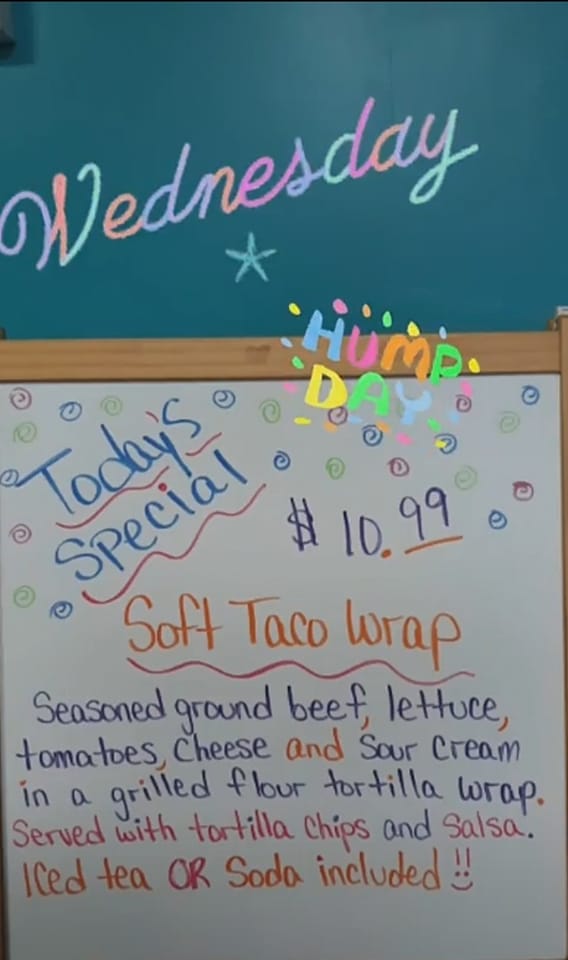 Wednesday
HUMP
DAY
Today's
Special
$ 10.99
Soft Taco Wrap
Seasoned ground beef, lettuce,
tomatoes, Cheese and Sour Cream
in a grilled flour tortilla wrap.
Served with tortilla Chips and Salsa.
Iced tea OR Soda included !!